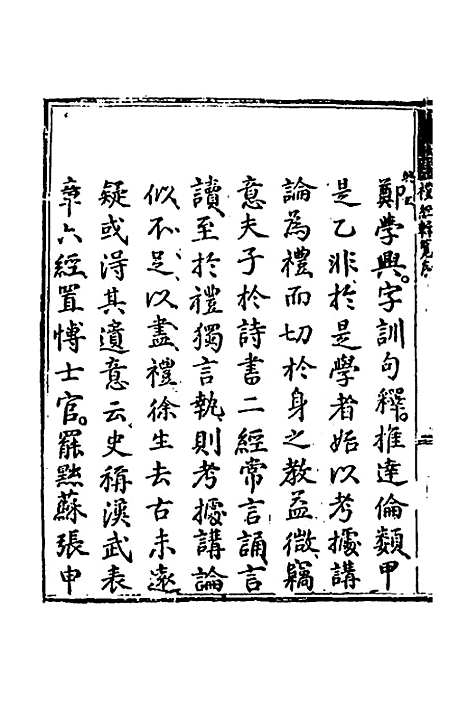 鄭學興字訓句釋推達倫類甲
是乙非於是學者始以考據講
論為禮而切於身之教益微竊
意夫子於詩書二經常言誦言
讀至於禮獨言執則考據講論
似不足以盡禮徐生去古未遠
疑或得其遺意云史稱漢武表
章六經置博士官罷黜蘇張申